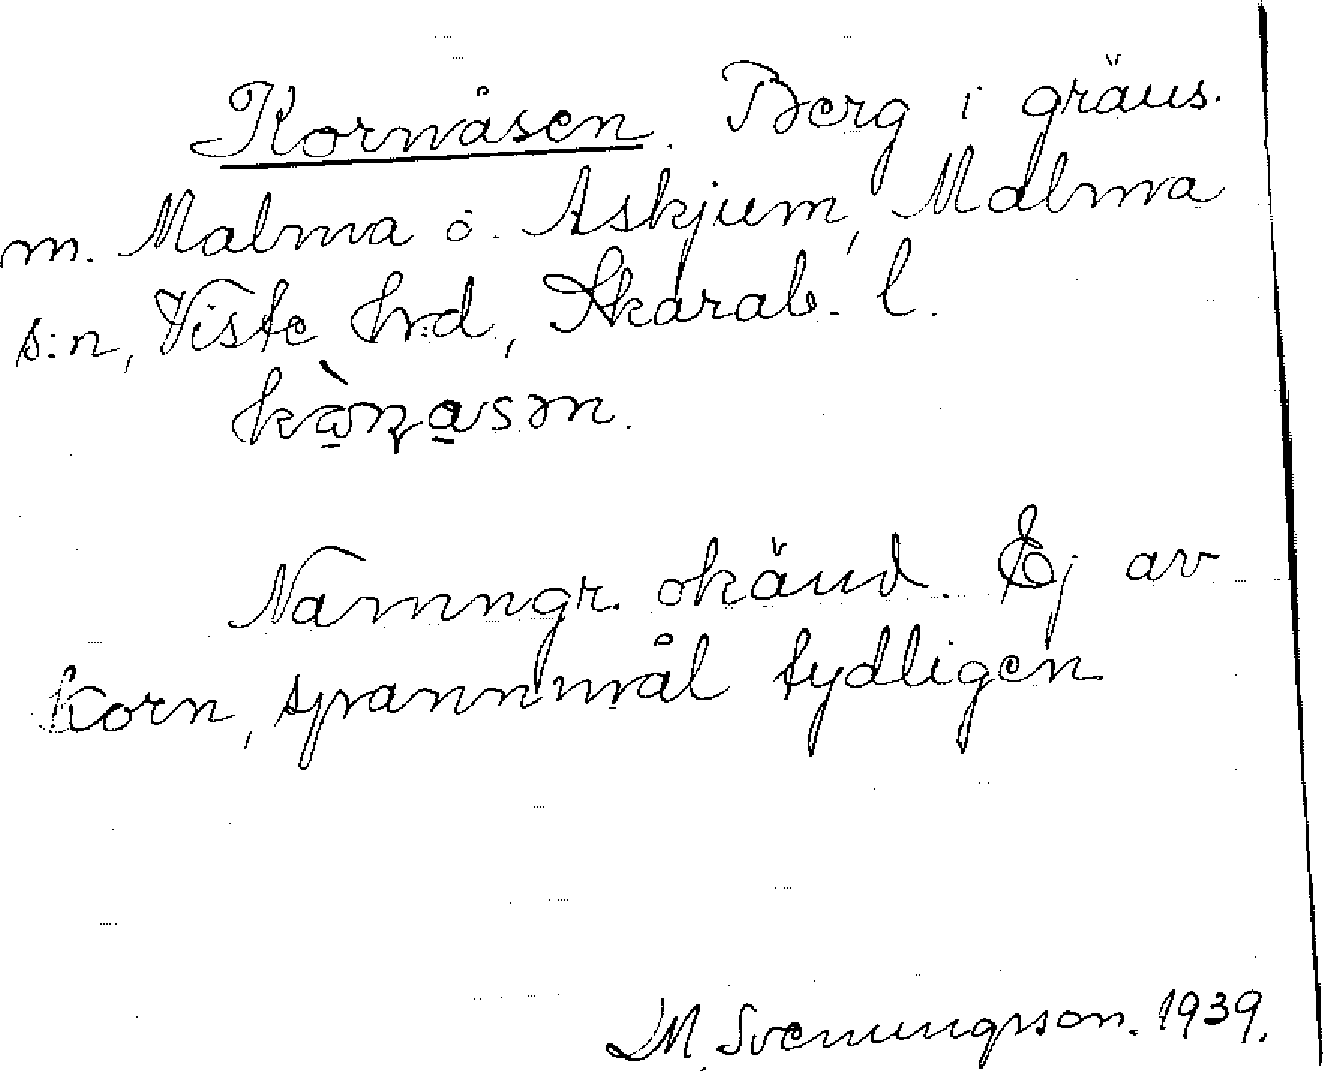 Kornåsen. Berg i gräns.
m. Malma o. Askjum, Malma
s:n, Viste hrd, Skarab. l.
kòɳasən.
Namngr. okänd. Ej av
korn, spannmål tydligen
M. Svenungsson. 1939.